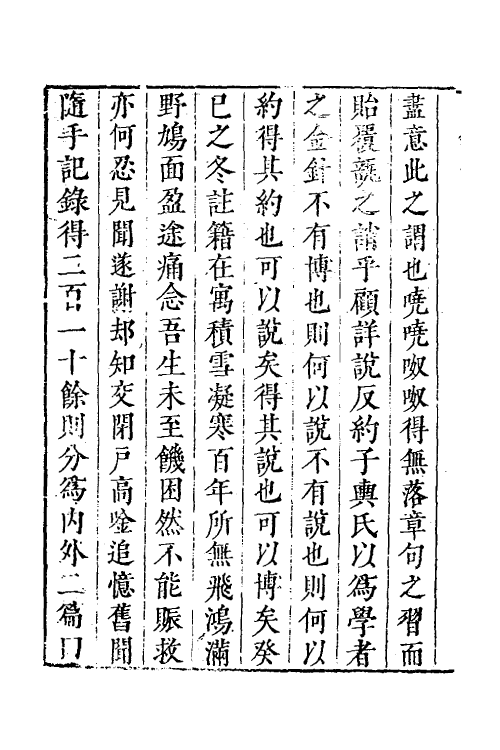 盡意此之謂也嘵嘵呶呶得無落章句之習而
貽覆瓿之誚乎顧詳說反約子輿氏以爲學者
之金針不有博也則何以說不有說也則何以
約得其約也可以說矣得其說也可以博矣癸
巳之冬註籍在寓積雪凝寒百年所無飛鴻滿
野鳩面盈途痛念吾生未至饑困然不能賑救
亦何忍見聞遂謝却知交閉戸高唫追憶舊聞
隨手記錄得二百一十餘則分爲内外二篇曰